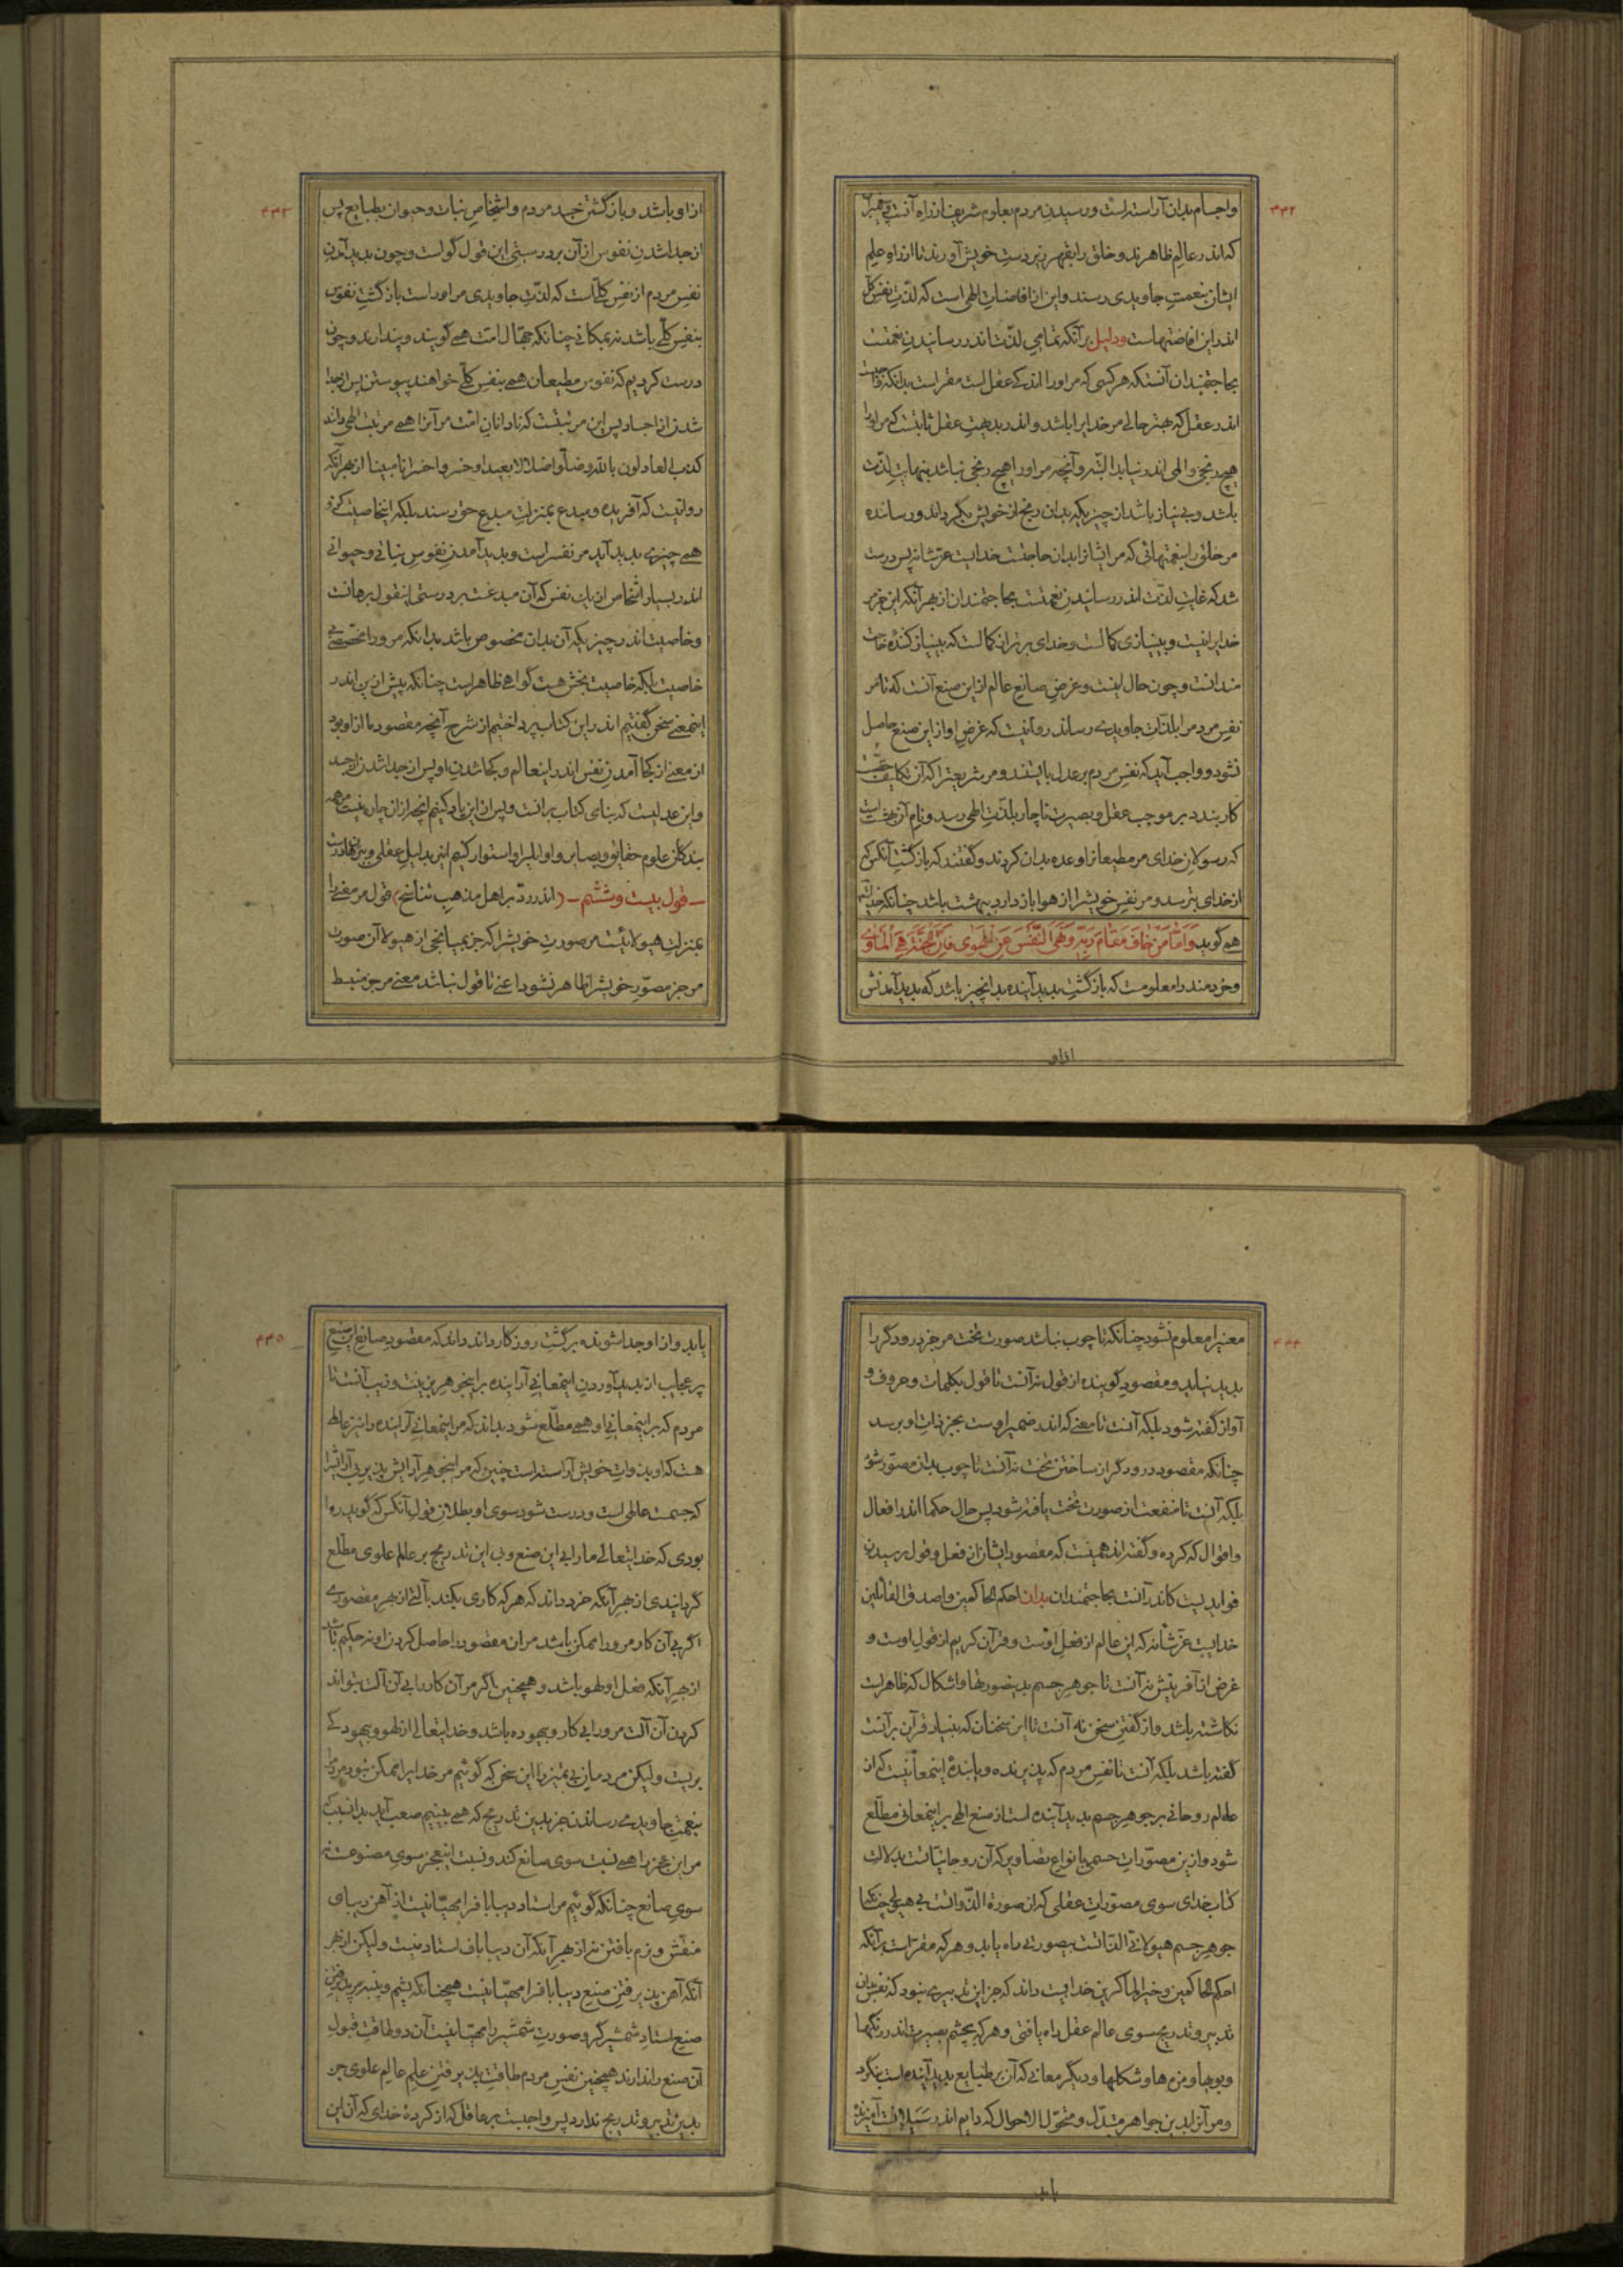 ۴۳۲
واجسام بدان آراسته است ورسیدن مردم بعلوم شریف از راه آنست
که اندر عالم ظاهرند وخلق را بقهر زیر دست خویش آورند تا از راه علم
ایشان بنعمت جاویدی رسند واین از افاضات الهی است که لذت نفس کل
اندر این افاضتهاست ودلیل برآنکه تمامی لذت اندر رسانیدن نعمتست
بحاجتمندان آنستکه هرکسی که مر اورا اندکی عقل است مقر است بدانکه
اندر عقل که بهتر حالی مر خدایرا باشد واندر بدیهت عقل ثابتست که مر اورا
هیچ رنجی والمی اندر نیاید البته وآنچه مر اورا هیچ رنجی نباشد بنهایت لذت
باشد وبی نیاز باشد از چیزیکه بدان رنج از خویش بگرداند ورساننده
مر خلق را بنعمتهائی که مر ایشانرا بدان حاجتست خدایست عزشانه پس درست
شد که غایت لذت اندر رسانیدن نعمتست بحاجتمندان از بهر آنکه این جز مر
خدایرا نیست وبینیازی کمالست وخدای برتر از کمالست که بینیاز کننده
مندانست وچون حال اینست وغرض صانع عالم از این صنع آنست که تا مر
نفس مردم را بلذات جاویدی رساند روا نیست که غرض او از این صنع حاصل
نشود وواجب آید که نفس مردم بر عدل بایستند ومر شریعترا که آن تکلیف
کار بندد بر موجب عقل وبصیرت ناچار بلذت الهی رسد ونام آن بهشت است
که رسولان خدای مر مطیعانرا وعده بدان کردند وگفتند که بازگشت آنکس که
از خدای بترسد ومر نفس خویشرا از هوا باز دارد ببهشت باشد چنانکه خدای
همی گوید وَاَمّا مَنْ خافَ مَقامَ رَبِّهِ وَنَهَی النَّفْسَ عَنِ الْهَوی فَاِنَّ الْجَنَّةَ هِیَ الْمَأْوی
وخردمند را معلومست که بازگشت پدید آینده بدانچیز باشد که پدید آمدنش
ازاو
۴۳۳
از او باشد وبازگشتن جسد مردم واشخاص نبات وحیوان بطبایع پس
از جدا شدن نفوس از آن بر درستی این قول گواست وچون پدید آمدن
نفس مردم از نفس کلی است که لذت جاویدی مر اوراست بازگشت نفوس
بنفس کلی باشد نه بمکانی چنانکه جهال امت همی گویند وپندارند وچون
درست کردیم که نفوس مطیعان همی بنفس کلی خواهند پیوستن پس از جدا
شدن از اجساد پس این مرتبتست که نادانان امت مر آنرا همی مرتبت الهی دانند
کذب العادلون بالله وضلوا ضلالا بعیدا وخسروا خسرانا مبینا از بهر آنکه
روا نیست که آفریده ومبدع بمنزلت مبدع حق رسند بلکه اینخاصیت
همی چیزی پدید آید مر نفسراست وپدید آمدن نفوس نباتی وحیوانی
اندر بسیار اشخاص از یک نفس که آن مبدعست بر درستی اینقول برهانست
وخاصیت اندر چیزیکه آن بدان مخصوص باشد بدانکه مر ورا مخصصی
خاصیت بلکه خاصیت بخش هست گواهی ظاهر است چنانکه پیش از این اندر
اینمعنی سخن گفتیم اندر این کتاب پرداختیم از شرح آنچه مقصود ما از او بود
از معنی از کجا آمدن نفس اندر اینعالم وکجا شدن او پس از جدا شدن از جسد
واین عدلیست که بنای کتاب برانست وپس از این یاد کنیم آنچه از آن چاره نیست مر همه
بندگان علوم حقایق وبصایر واوایل را واستوار کنیم این بدلیل عقلی
– قول بیست وششم – (اندر رد بر اهل مذهب تناسخ) قول مر معنی را
بمنزلت هیولانیست مر صورت خویشرا که جز بمیانجی از هیولا آن صورت
مر جز مصور خویشرا ظاهر نشود اعنی تا قول نباشد معنی مر جز منبسط
۴۳۴
معنیرا معلوم نشود چنانکه تا چوب نباشد صورت تخت مر جز درودگر را
پدید نیاید ومقصود گوینده از قول نه آنست تا قول بکلمات وحروف و
آواز گفته شود بلکه آنست تا معنی که اندر ضمیر اوست بجز ذات او برسد
چنانکه مقصود درودگر از ساختن تخت نه آنست تا چوب بدان مصور شود
بلکه آنست تا منفعت از صورت تخت یافته شود پس حال حکما اندر افعال
واقوال که کرده وگفته اند همینست که مقصود ایشان از فعل وقول رسیدن
فوایدیست کاندر آنست بحاجتمندان بدان احکم الحاکمین واصدق القائلین
خدایست عزشانه که این عالم از فعل اوست وقرآن کریم از قول اوست و
غرض از آفرینش نه آنست تا جوهر جسم بدینصورتها واشکال که ظاهر است
نگاشته باشد واز گفتن سخن نه آنست تا این سخنان که بنیاد قرآن برآنست
گفته باشد بلکه آنست تا نفس مردم که پذیرنده ویابنده اینمعانیست که از
عالم روحانی بر جوهر جسم پدید آینده است از صنع الهی بر اینمعانی مطلع
شود واز این مصورات حسی بانواع تصاویر که آن روحانیاتست بدلالت
کتاب خدای سوی مصورات عقلی که آن صورة الذواتست بی هیولی چنانکه
جوهر جسم هیولانی الذاتست بیصورتی راه یابد وهر که مقر است برآنکه
احکم الحاکمین وخیر الماکرین خدایست داند که جز این تدبیری نبود که نفس بدان
تدبیر وتدریج سوی عالم عقل راه یافتی وهر که بچشم بصیرت اندر رنگها
وبویها ومزه ها وشکلها ودیگر معانی که آن بر طبایع پدید آینده است بنگرد
ومر آنرا بدین جواهر متبدل ومتحول الاحوال که دایم اندر سیلانست آمیزنده
یابد
۴۳۵
یابد واز او جدا شونده برگشت روزگار داند که مقصود صانع این صنع
پر عجایب از پدید آوردن اینمعانی آراینده بر اینجوهر زینت وزیب آنست تا
مردم که بر اینمعانی او همی مطلع شود بداند که مر اینمعانی آراینده را نیز عالمی
هست که او بذوات خویش آراسته است چنین که مر اینجوهر آرایش پذیر بی آرایشرا
که جسمست عالمی است ودرست شود سوی او بطلان قول آنکس که گوید روا
بودی که خدایتعالی مارا بی این صنع وبی این تدریج بر عالم علوی مطلع
گردانیدی از بهر آنکه خرد داند که هر که کاری بکند بآلتی از بهر مقصودی
اگر بی آن کار مر ورا ممکن باشد مر آن مقصود را حاصل کردن او نه حکیم باشد
از بهر آنکه فعل او لهو باشد وهمچنین اگر مر آن کار را بی آن آلت بتواند
کردن آن آلت مر ورا بی کار وبیهوده باشد وخدایتعالی از لهو وبیهودگی
بریست ولیکن مردمان بی تمیز را این سخن که گوئیم مر خدایرا ممکن نبود مردم را
بنعمت جاویدی رسانیدن جز بدین تدریج که همی بینیم صعب آید بدانسبب که
مر این عجز را همی نسبت سوی صانع کند ونسبت اینعجز سوی مصنوعست نه
سوی صانع چنانکه گوئیم مر استاد دیبا بافرا مهیا نیست از آهن دیبای
منقش ونرم بافتن نه از بهر آنکه آن دیبا باف استاد نیست ولیکن از بهر
آنکه آهن پذیرفتن صنع دیبا بافرا مهیا نیست همچنانکه پشم وپنبه مر پذیرفتن
صنع استاد شمشیرگر وصورت شمشیر را مهیا نیست آن دو طاقت قبول
آن صنع را ندارند همچنین نفس مردم طاقت پذیرفتن علم عالم علوی جز
بدین تدبیر وتدریج ندارد پس واجبست بر عاقل که از کرده خدای که آن این